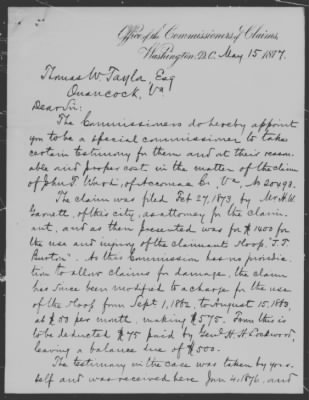 Office of the Commissioners of Claims,
Washington, D.C. May 15 1877.
Thomas W. Taylor, Esq
Onancock, Va
Dear Sir:
The Commissioners do hereby appoint
you to be a special commissioner to take
certain testimony for them and at their reason-
able and proper cost in the matter of the claim
of John T. Ward, of Accomac Co. Va, No 20493.
The claim was filed Feb 27, 1873, by Mr. H. W.
Garnett, of this city, as attorney for the claim-
ant, and as then presented was for $1400 for
the use and injury of the claimants sloop, "T. T.
Burton". As this Commission has no jurisdic-
tion to allow claims for damage, the claim
has since been modified to a charge for the use
of the sloop from Sept 1, 1862, to August 15, 1863,
at $50 per month, making $575. From this is
to be deducted $75 paid by Genl H. H. Lockwood
leaving a balance due of $500.
The testimony in the case was taken by your-
self and was received here Jan 4, 1876, and